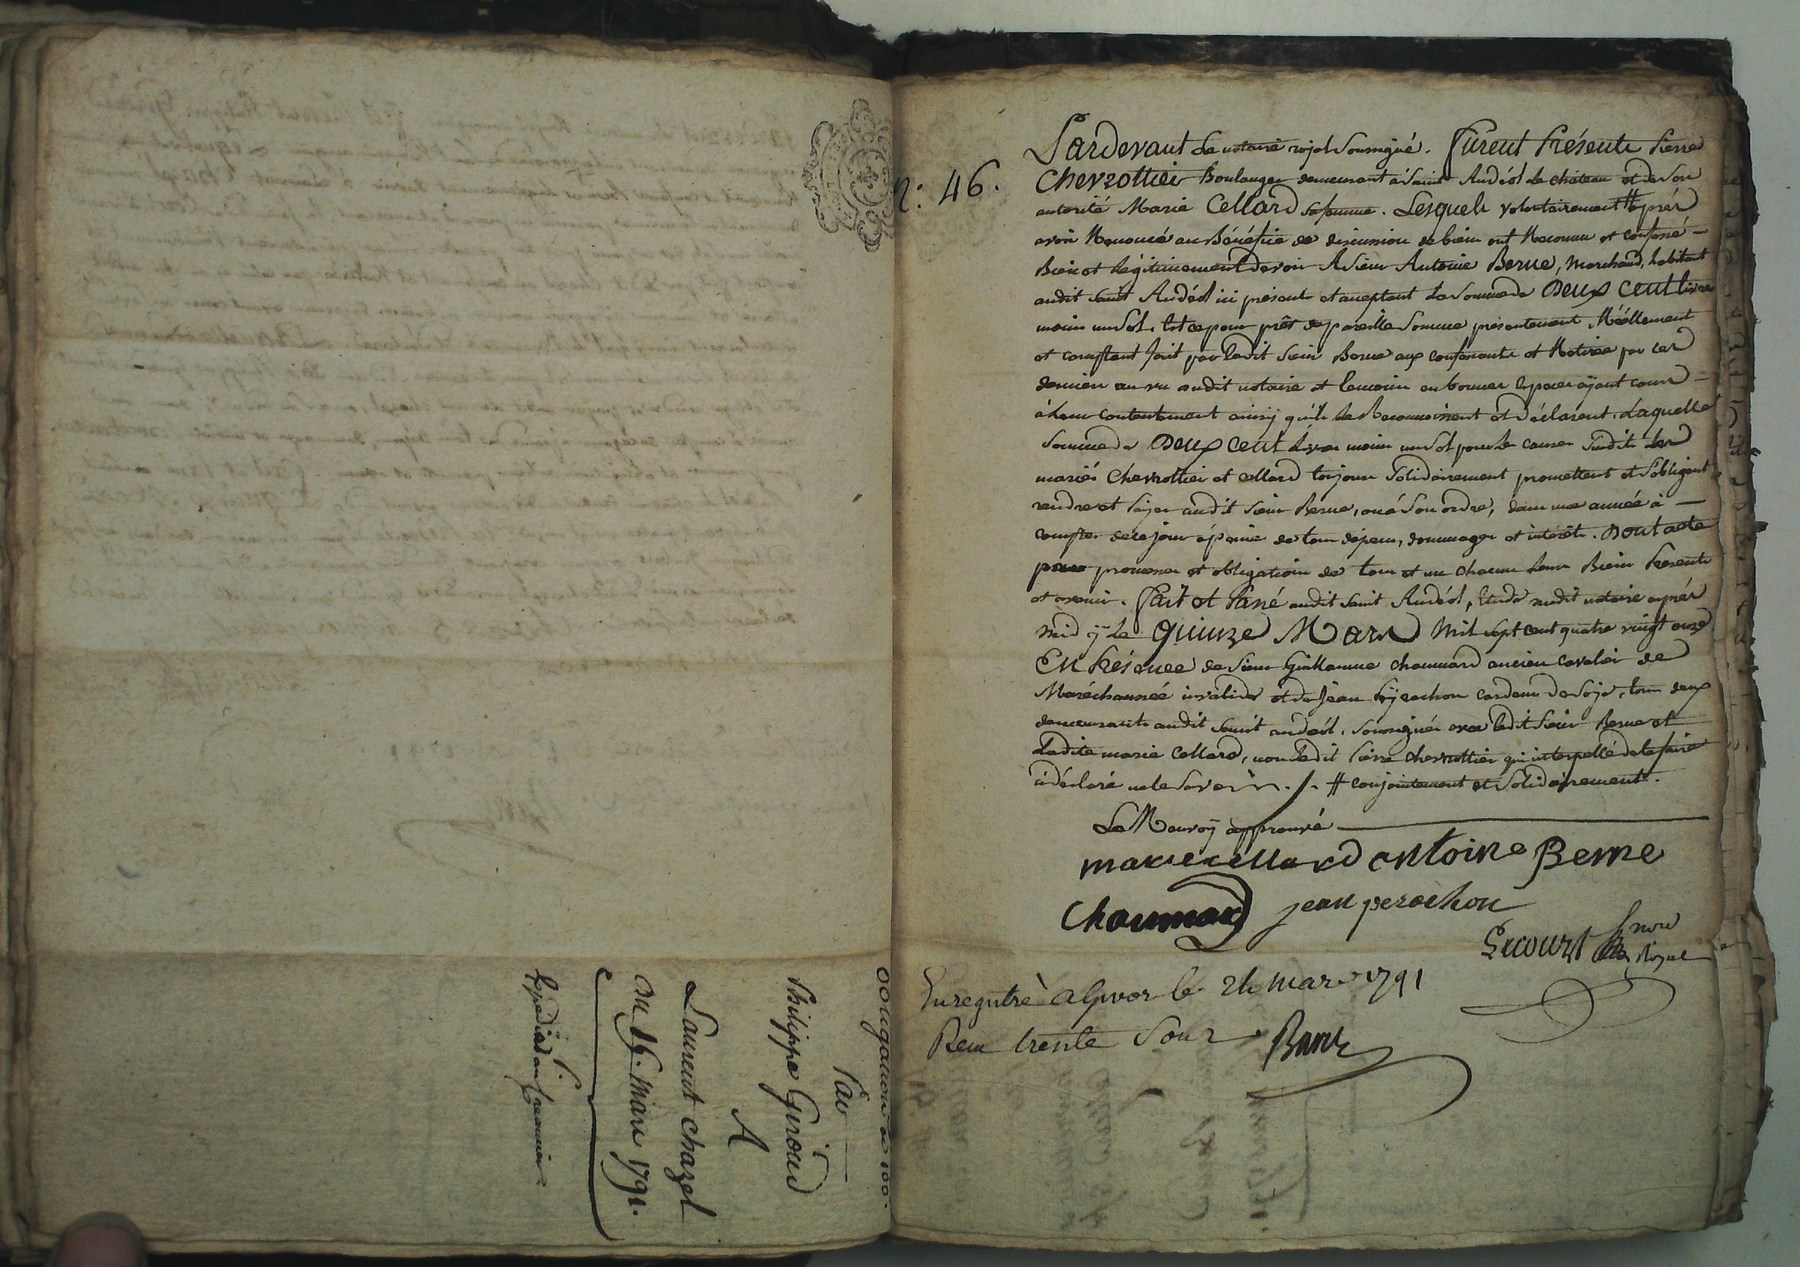 obligation de 100.
Par
Philippe Giroud
A
Laurent chazel
Du 16. Mars 1791.
Expédié au Creancier
n: 46.
Pardevant Le notaire royal soussigné. Furent Présents Pierre
Chevrottier Boulanger demeurant à Saint Andéol Le château et de son
autorité Marie Cellard sa femme. Lesquels volontairement # après
avoir Renoncé au Bénéfice de discussion de biens ont Reconnu et confessé
Bien et Légitimement devoir A Sieur Antoine Berne, Marchand, habitant
audit Saint Andéol ici présent et acceptant La Somme de Deux cent Livres
moins un Sol. Et ce pour prêt de pareille Somme présentement Réellement
et comptant fait par Ledit Sieur Berne aux confessants et Retirée par ces
derniers au vu dudit notaire et temoins en bonnes espèces ayant cours
à Leur contentement ainsy qu'ils Le Reconnoissent et Déclarent. Laquelle
Somme de Deux cent Livres moins un Sol pour Les causes Susdites Les
mariés Chevrottier et Cellard toujours Solidairement promettent et S'obligent
rendre et Payer audit Sieur Berne, ou à Son ordre, dans une année à
compter de ce jour à peine de tous dépens, dommages et intérêts. Dont acte
promesses et obligations de tous et un chacun Leurs Biens Présents
et avenir. Fait et Passé audit Saint Andéol, Etude dudit notaire après
midÿ Le quinze Mars Mil Sept cent quatre vingt onze
En Présence de Sieur Guillaume Chaumard ancien cavalier de
Maréchaussée invalide et de Jean Peÿrachon cardeur de Soÿe, tous deux
demeurants audit Saint andéol, Soussignés avec Ledit Sieur Berne et
Ladite marie Cellard, non Ledit Pierre Chevrottier qui interpellé de Le faire
a déclaré ne Le Savoir. /. # conjointement et Solidairement.
Le Renvoÿ approuvé
marie cellard antoine Berne
Chaumard jean perachon
Lecourt nore Royal
Enregistré a Givors le 24 mars 1791
Reçu trente Sous